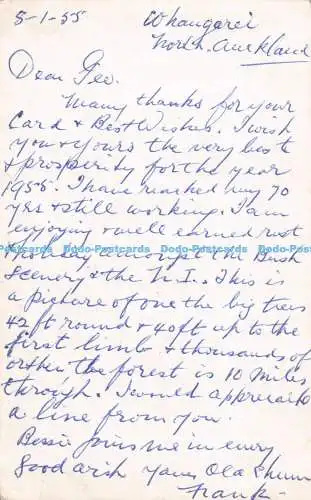 5-1-55 Whangarei
North. Auckland
Dear Geo.
Many thanks for your
Card & Best Wishes. I wish
you & yours the very best
& prosperity for the year
1955. I have reached my 70
yrs & still working. I am
enjoying a well earned rest
& holiday amongst the Bush
Scenery of the N.I. This is
a picture of one the big trees
42 ft round & 40 ft up to the
first limb & thousands of
other the forest is 10 miles
through. I would appreciate
a line from you.
Bessie joins me in every
good wish Your Old Chum
Frank -
Postcards Dodo-Postcards Dodo-Postcards Dodo-Postcards Dodo